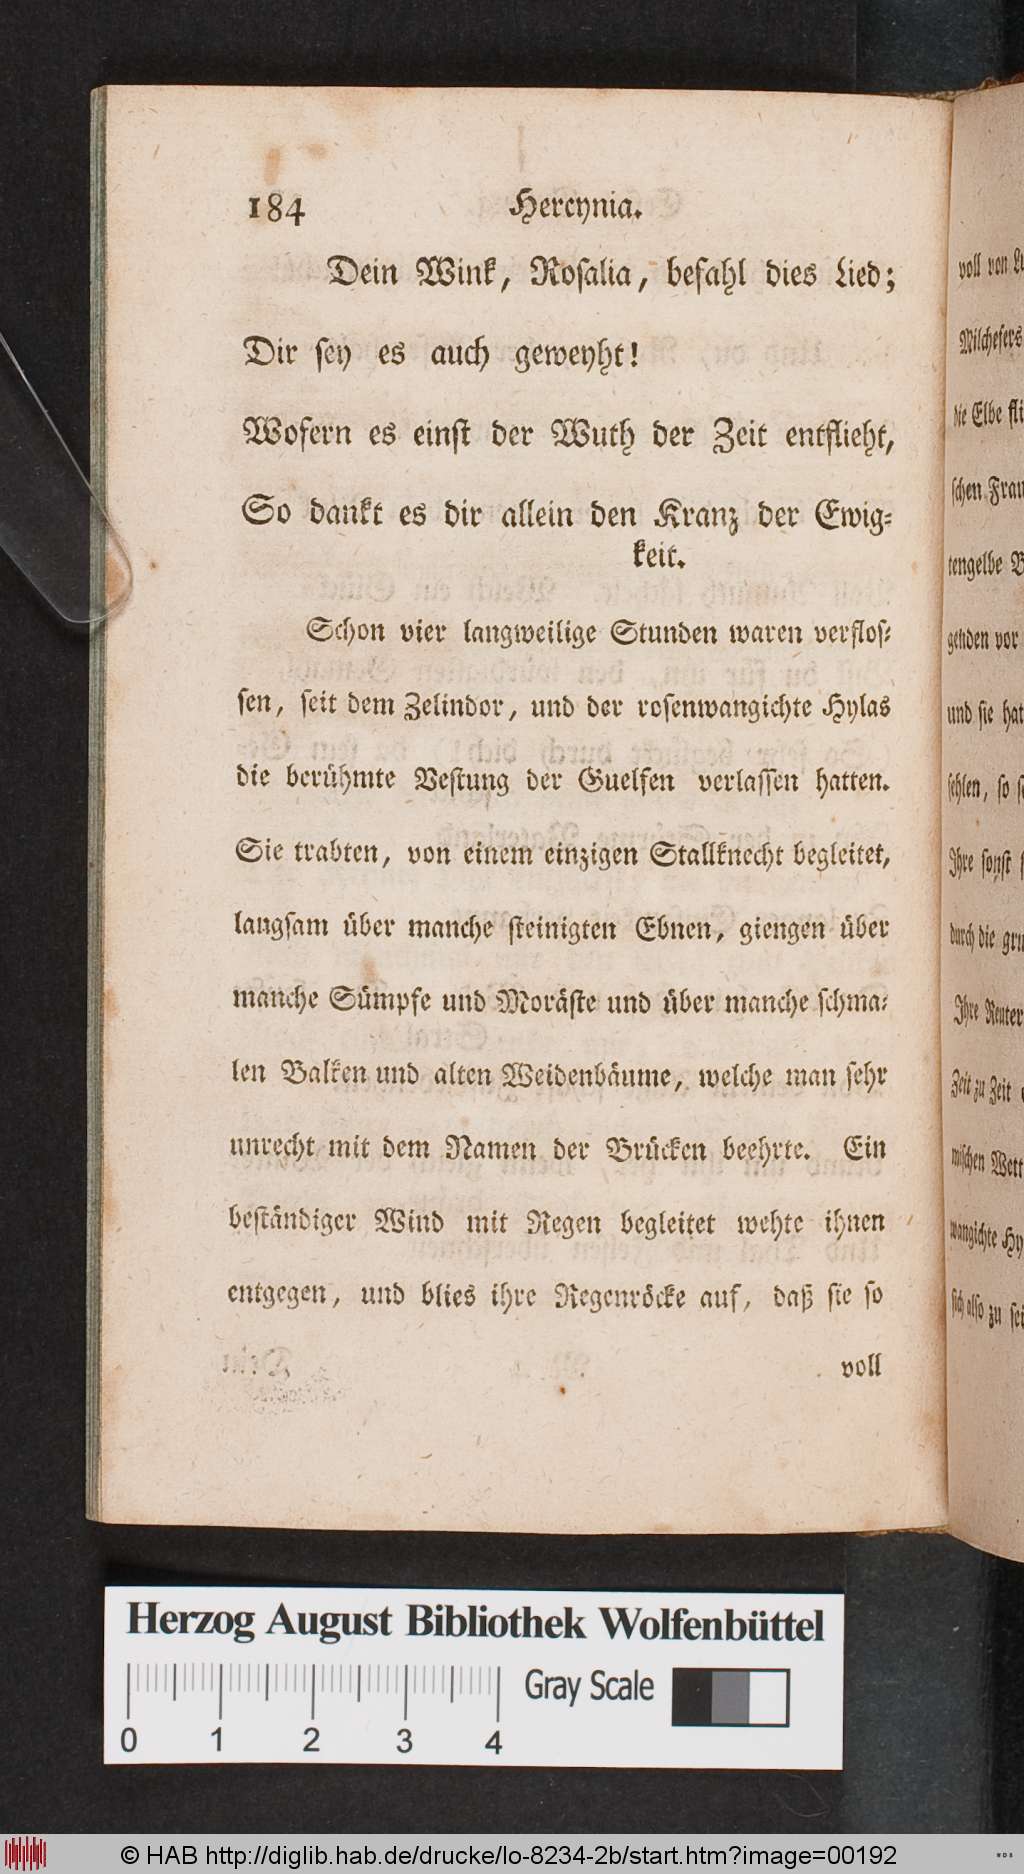 184 Hercynia.
Dein Wink, Rosalia, befahl dies Lied;
Dir sey es auch geweyht!
Wofern es einst der Wuth der Zeit entflieht,
So dankt es dir allein den Kranz der Ewig-
keit.
Schon vier langweilige Stunden waren verflos-
sen, seit dem Zelindor, und der rosenwangichte Hylas
die berühmte Vestung der Guelfen verlassen hatten.
Sie trabten, von einem einzigen Stallknecht begleitet,
langsam über manche steinigten Ebnen, giengen über
manche Sümpfe und Moräste und über manche schma-
len Balken und alten Weidenbäume, welche man sehr
unrecht mit dem Namen der Brücken beehrte. Ein
beständiger Wind mit Regen begleitet wehte ihnen
entgegen, und blies ihre Regenröcke auf, daß sie so
voll
voll von
die Elbe
schen
tengelbe
genden vor
und sie
so
Ihre sonst
durch die
Ihre
Zeit zu Zeit
wangichte
sich also zu
Herzog August Bibliothek Wolfenbüttel
Gray Scale
0 1 2 3 4
© HAB http://diglib.hab.de/drucke/lo-8234-2b/start.htm?image=00192